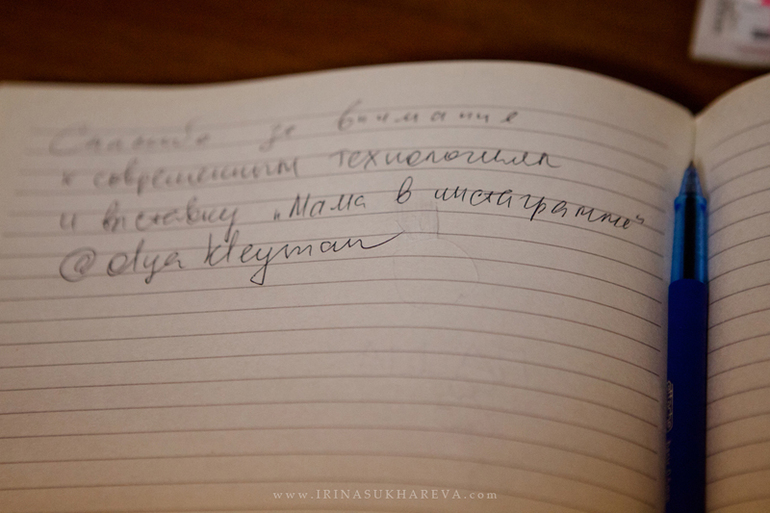 Спасибо за внимание
к современным технологиям
и выставку „Мама в инстаграмме"
@olya kleyman
www.IRINASUKHAREVA.com